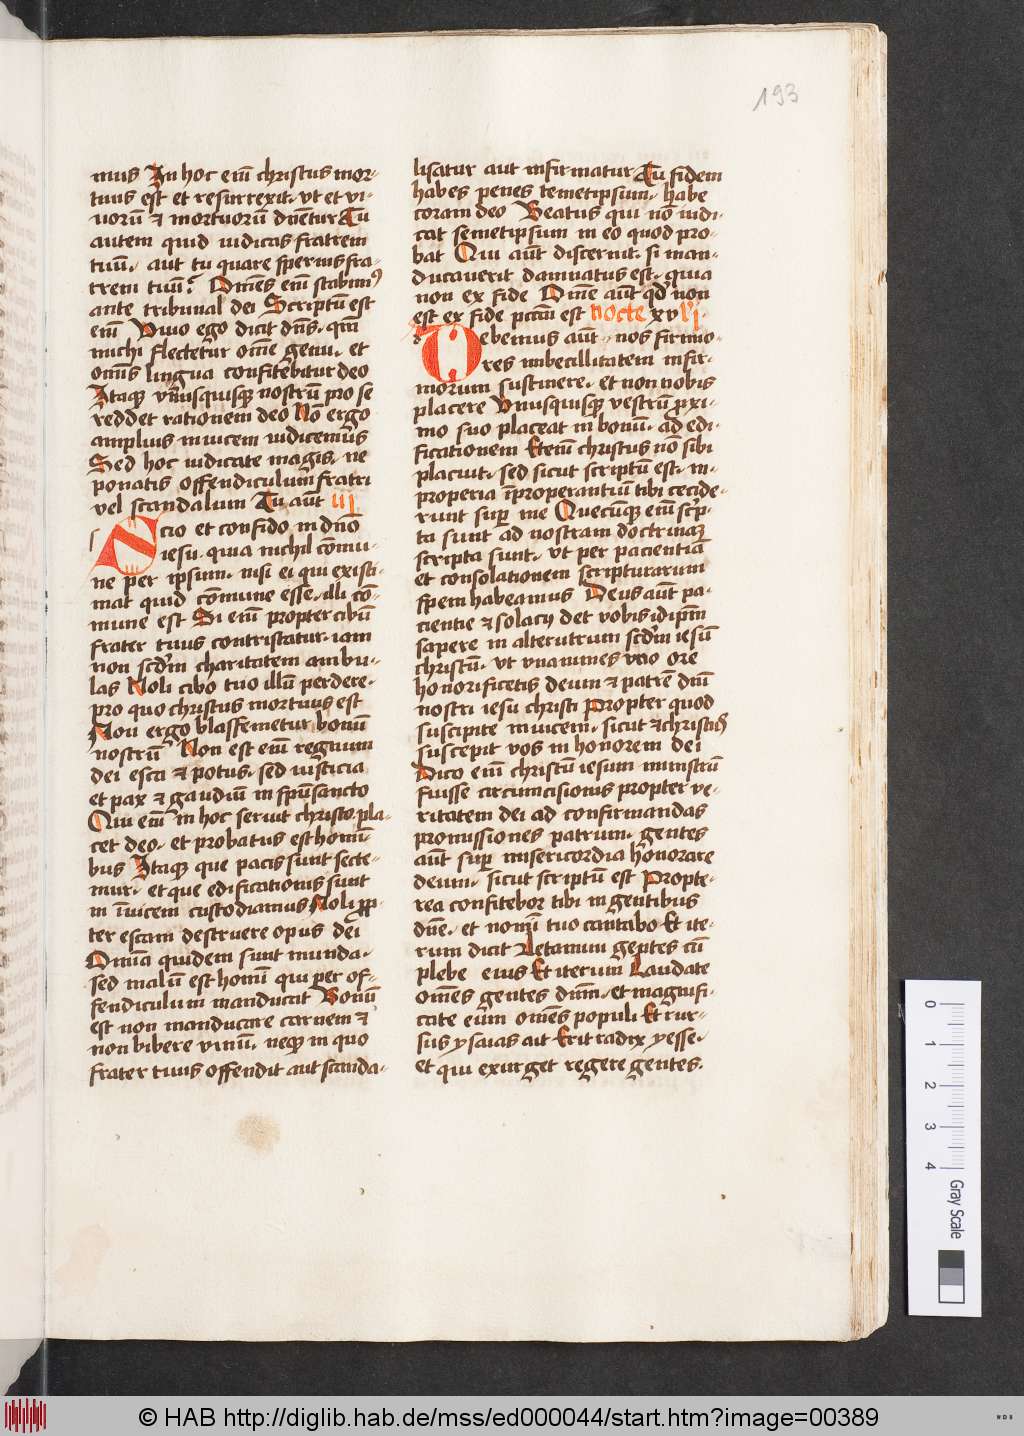 193
mus In hoc em̄ christus mor-
tuus est et resurrexit. vt et vi-
uorū & mortuorū dn̄etur Tu
autem quid iudicas fratrem
tuū. aut tu quare spernis fra-
trem tuū? Om̄es em̄ stabimꝰ
ante tribunal dei Scriptū est
em̄ Viuo ego dicit dn̄s. qm̄
michi flectetur om̄e genu. et
om̄is lingua confitebitur deo
Itaqꝫ vn̄usquisqꝫ nostrū pro se
reddet rationem deo Nō ergo
amplius inuicem iudicem̄us
Sed hoc iudicate magis. ne
ponatis offendiculum̄ fratri
vel scandalum Tu aūt iij
Scio et confido in dn̄o
iesu. quia nichil cōmu-
ne per ipsum. nisi ei qui existi-
mat quid cōmune esse. illi cō-
mune est Si em̄ propter cibū
frater tuus contristatur. iam
non scd̄m charitatem ambu-
las Noli cibo tuo illū perdere.
pro quo christus mortuus est
Non ergo blasfemetur bonū
nostrū Non est em̄ regnum
dei esca & potus. sed iusticia
et pax & gaudiū in spū sancto
Qui em̄ in hoc seruit christo. pla-
cet deo. et probatus est homī-
bus Itaqꝫ que pacis sunt secte-
mur. et que edificationis sunt
in īuicem custodiamus Noli ꝓp-
ter escam destruere opus dei
Om̄ia quidem sunt munda.
sed malū est homī qui per of-
fendiculum manducat Bonū
est non manducare carnem &
non bibere vinū. neqꝫ in quo
frater tuus offendit aut scanda-
lisatur aut infirmatur Tu fidem
habes penes temetipsum. habe
coram deo Beatus qui nō iudi-
cat semetipsum in eo quod pro-
bat Qui aūt discernit. si man-
ducauerit damnatus est. quia
non ex fide Om̄e aūt qd̄ non
est ex fide pcc̄m est nocte xvij.
Debemus aūt. nos firmio-
res imbecillitatem infir-
morum sustinere. et non nobis
placere Vnusquisqꝫ vestrū ꝓxi-
mo suo placeat in bonū. ad edi-
ficationem Etem̄ christus nō sibi
placuit. sed sicut scriptū est. in-
properia īproperantiū tibi cecide-
runt suꝑ me Quecūqꝫ em̄ scͥp-
ta sunt ad nostram doctrinaꝫ
scripta sunt. vt per pacientiā
et consolationem scripturarum
spem habeamus Deus aūt pa-
cientie & solacij det vobis idip̄m
sapere in alterutrum scd̄m iesū
christū. vt vnanimes vno ore
honorificetis deum & patrē dn̄i
nostri iesu christi Propter quod
suscipite inuicem. sicut & christꝰ
suscepit vos in honorem dei
Dico em̄ christū iesum ministrū
fuisse circumcisionis propter ve-
ritatem dei ad confirmandas
promissiones patrum. gentes
aūt suꝑ misericordia honorare
deum. sicut scriptū est Propte-
rea confitebor tibi in gentibus
dn̄e. et nomī tuo cantabo Et ite-
rum dicit Letamini gentes cū
plebe eius Et iterum Laudate
om̄es gentes dn̄m. et magnifi-
cate eūm om̄es populi Et rur-
sus ysaias ait Erit radix yesse.
et qui exurget regere gentes.
0 1 2 3 4 Gray Scale
© HAB http://diglib.hab.de/mss/ed000044/start.htm?image=00389